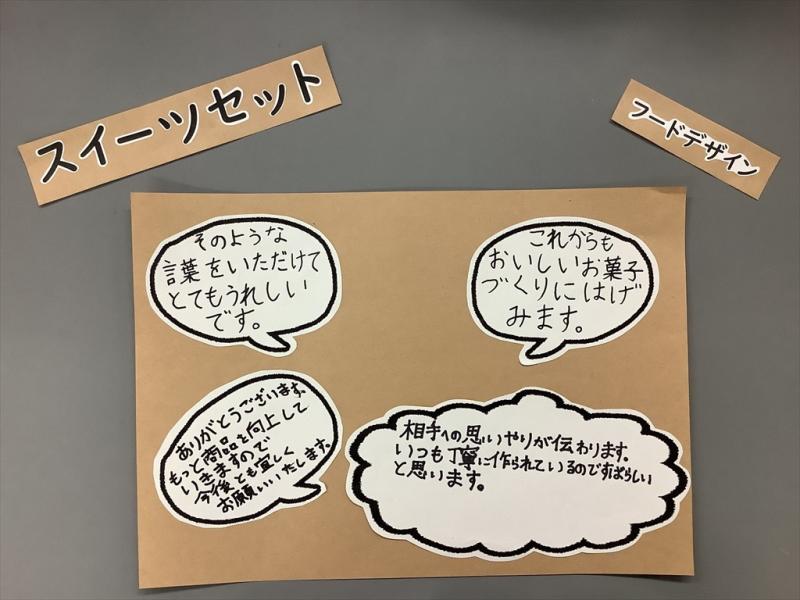 スイーツセット
フードデザイン
そのような
言葉をいただけて
とてもうれしい
です。
これからも
おいしいお菓子
づくりにはげ
みます。
ありがとうございます。
もっと商品を向上して
いきますので
今後とも宜しく
お願いいたします。
相手への思いやりが伝わります。
いつも丁寧に作られているのですばらしい
と思います。